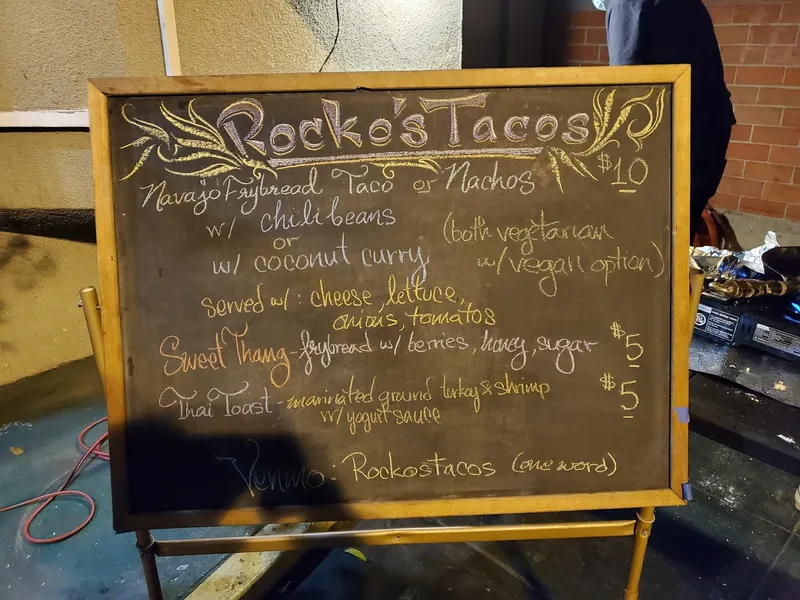 Rocko's Tacos
Navajo Frybread Taco or Nachos $10
w/ chili beans
or
w/ coconut curry
(both vegetarian
w/ vegan option)
served w/: cheese, lettuce,
onions, tomatos
Sweet Thang - frybread w/ berries, honey, sugar $5
Thai Toast - marinated ground turkey & shrimp $5
w/ yogurt sauce
Venmo: Rockostacos (one word)